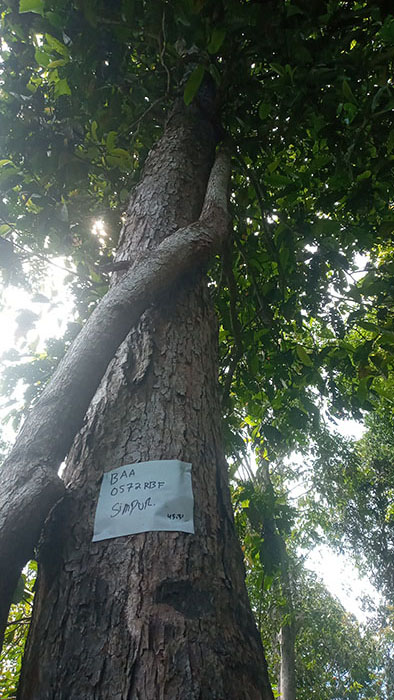 BAA
0572RBF
SIMPUR.